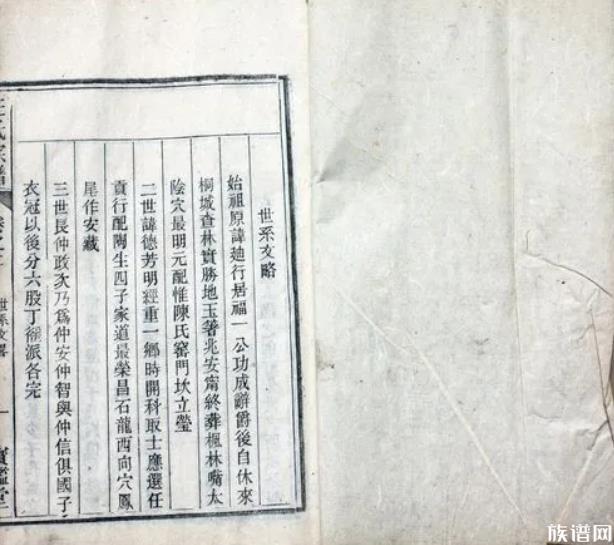 世系文略
始祖原諱廸行居福一公功成辭爵後自休來
桐城查林實勝地玉著兆安甯終葬楓林嘴太
陰穴最明元配惟陳氏窑門坎立瑩
二世諱德芳明經重一鄉時開科取士應選任
貢行配陶生四子家道最榮昌石龍西向穴鳳
尾作安藏
三世長仲政次乃爲仲安仲智與仲信俱國子
衣冠以後分六股丁繩派各完
氏宗譜
世系文畧
一
寶鑑堂
族谱网